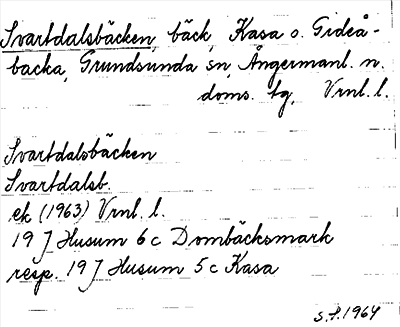 Svartdalsbäcken, bäck, Kasa o. Gideå-
backa, Grundsunda sn, Ångermanl. n.
doms. tg, Vrnl. l.
Svartdalsbäcken
Svartdalsb.
ek (1963) Vrnl. l.
19 J Husum 6 c Dombäcksmark
resp. 19 J Husum 5 c Kasa
S.f. 1964